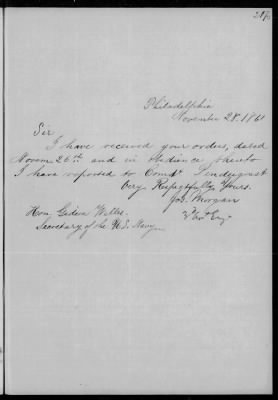 Philadelphia
November 28. 186
Sir
I have received your orders, dated
Novem 26th and in obedience thereto
I have reported to Comdt Pendergrast
Very Respectfully Yours.
Jos. Morgan
Hon. Gideon Welles.
Secretary of the U.S. Navy